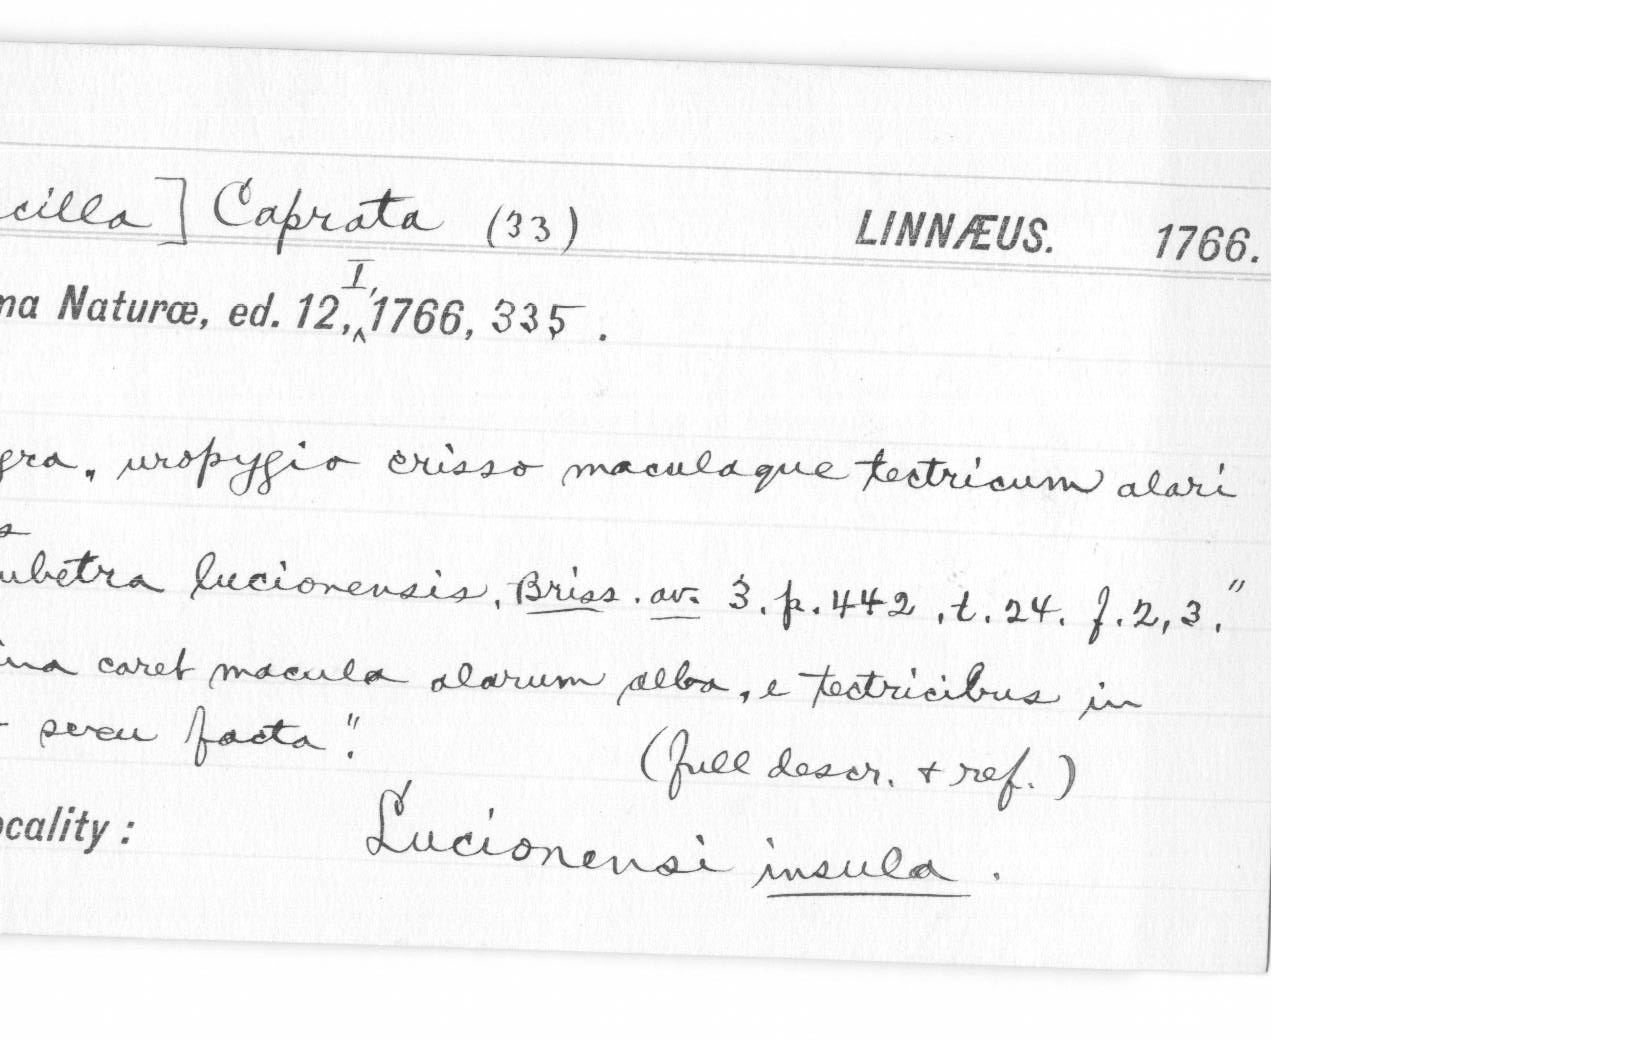 cilla] Caprata (33) LINNÆUS. 1766.
ma Naturæ, ed. 12, I, 1766, 335.
gra, uropygio crisso maculaque tectricum alari
s
ubetra lucionensis, Briss. av. 3. p. 442, t. 24. f. 2, 3."
ina caret macula alarum alba, e tectricibus in
facta".
(full descr. + ref.)
ocality: Lucionensi insula.